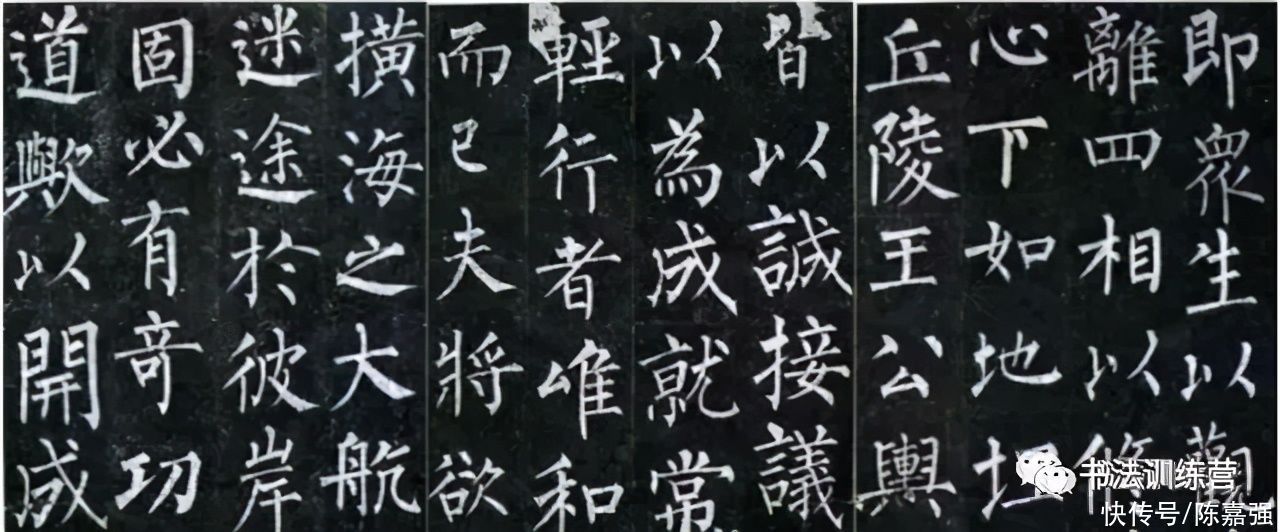 即眾生以觀
離四相以修
心下如地坦
丘陵王公輿
皆以誠接議
以為成就常
輕行者唯和
而已夫將欲
撗海之大航
迷途於彼岸
固必有奇功
道歟以開成
书法训练营
快传号/陈嘉强